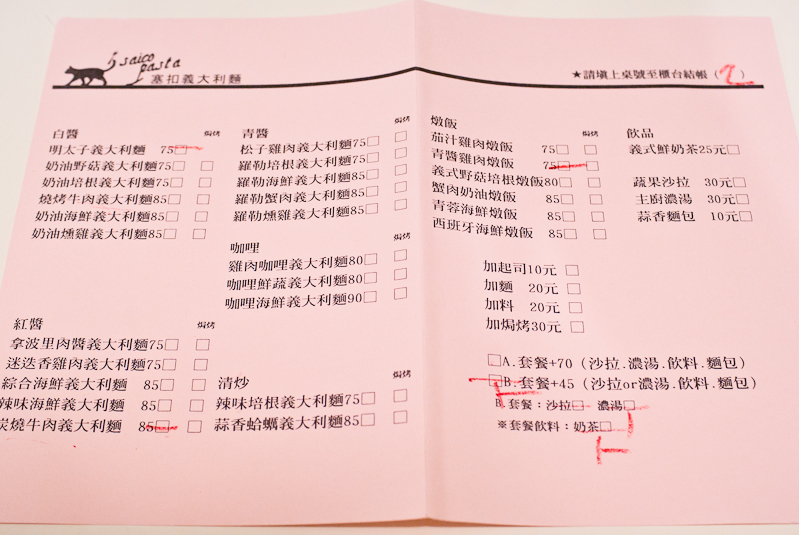 saico pasta
塞扣義大利麵
★請填上桌號至櫃台結帳（2）
白醬 焗烤
明太子義大利麵 75□
奶油野菇義大利麵75□ □
奶油培根義大利麵75□ □
燒烤牛肉義大利麵85□ □
奶油海鮮義大利麵85□ □
奶油燻雞義大利麵85□ □
紅醬 焗烤
拿波里肉醬義大利麵75□ □
迷迭香雞肉義大利麵75□ □
綜合海鮮義大利麵 85□ □
辣味海鮮義大利麵 85□ □
炭燒牛肉義大利麵 85□ □
青醬 焗烤
松子雞肉義大利麵75□ □
羅勒培根義大利麵75□ □
羅勒海鮮義大利麵85□ □
羅勒蟹肉義大利麵85□ □
羅勒燻雞義大利麵85□ □
咖哩 焗烤
雞肉咖哩義大利麵80□ □
咖哩鮮蔬義大利麵80□ □
咖哩海鮮義大利麵90□ □
清炒 焗烤
辣味培根義大利麵75□ □
蒜香蛤蠣義大利麵85□ □
燉飯 焗烤
茄汁雞肉燉飯 75□ □
青醬雞肉燉飯 75□ □
義式野菇培根燉飯80□ □
蟹肉奶油燉飯 85□ □
青蓉海鮮燉飯 85□ □
西班牙海鮮燉飯 85□ □
飲品
義式鮮奶茶25元□
蔬果沙拉 30元□
主廚濃湯 30元□
蒜香麵包 10元□
加起司10元 □
加麵 20元 □
加料 20元 □
加焗烤30元 □
□A.套餐+70（沙拉.濃湯.飲料.麵包）
□B.套餐+45（沙拉or濃湯.飲料.麵包）
B.套餐：沙拉□ 濃湯□
※套餐飲料：奶茶□